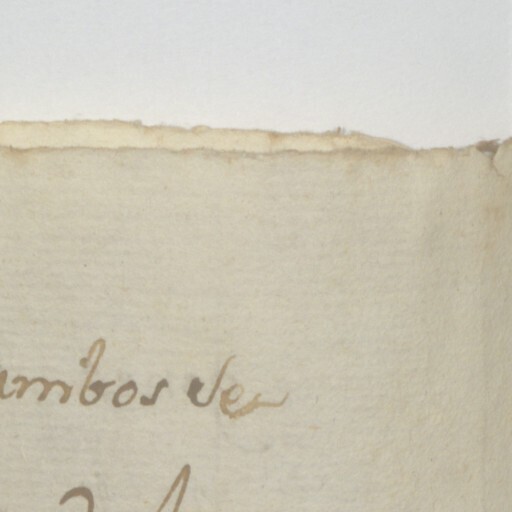 ambos de